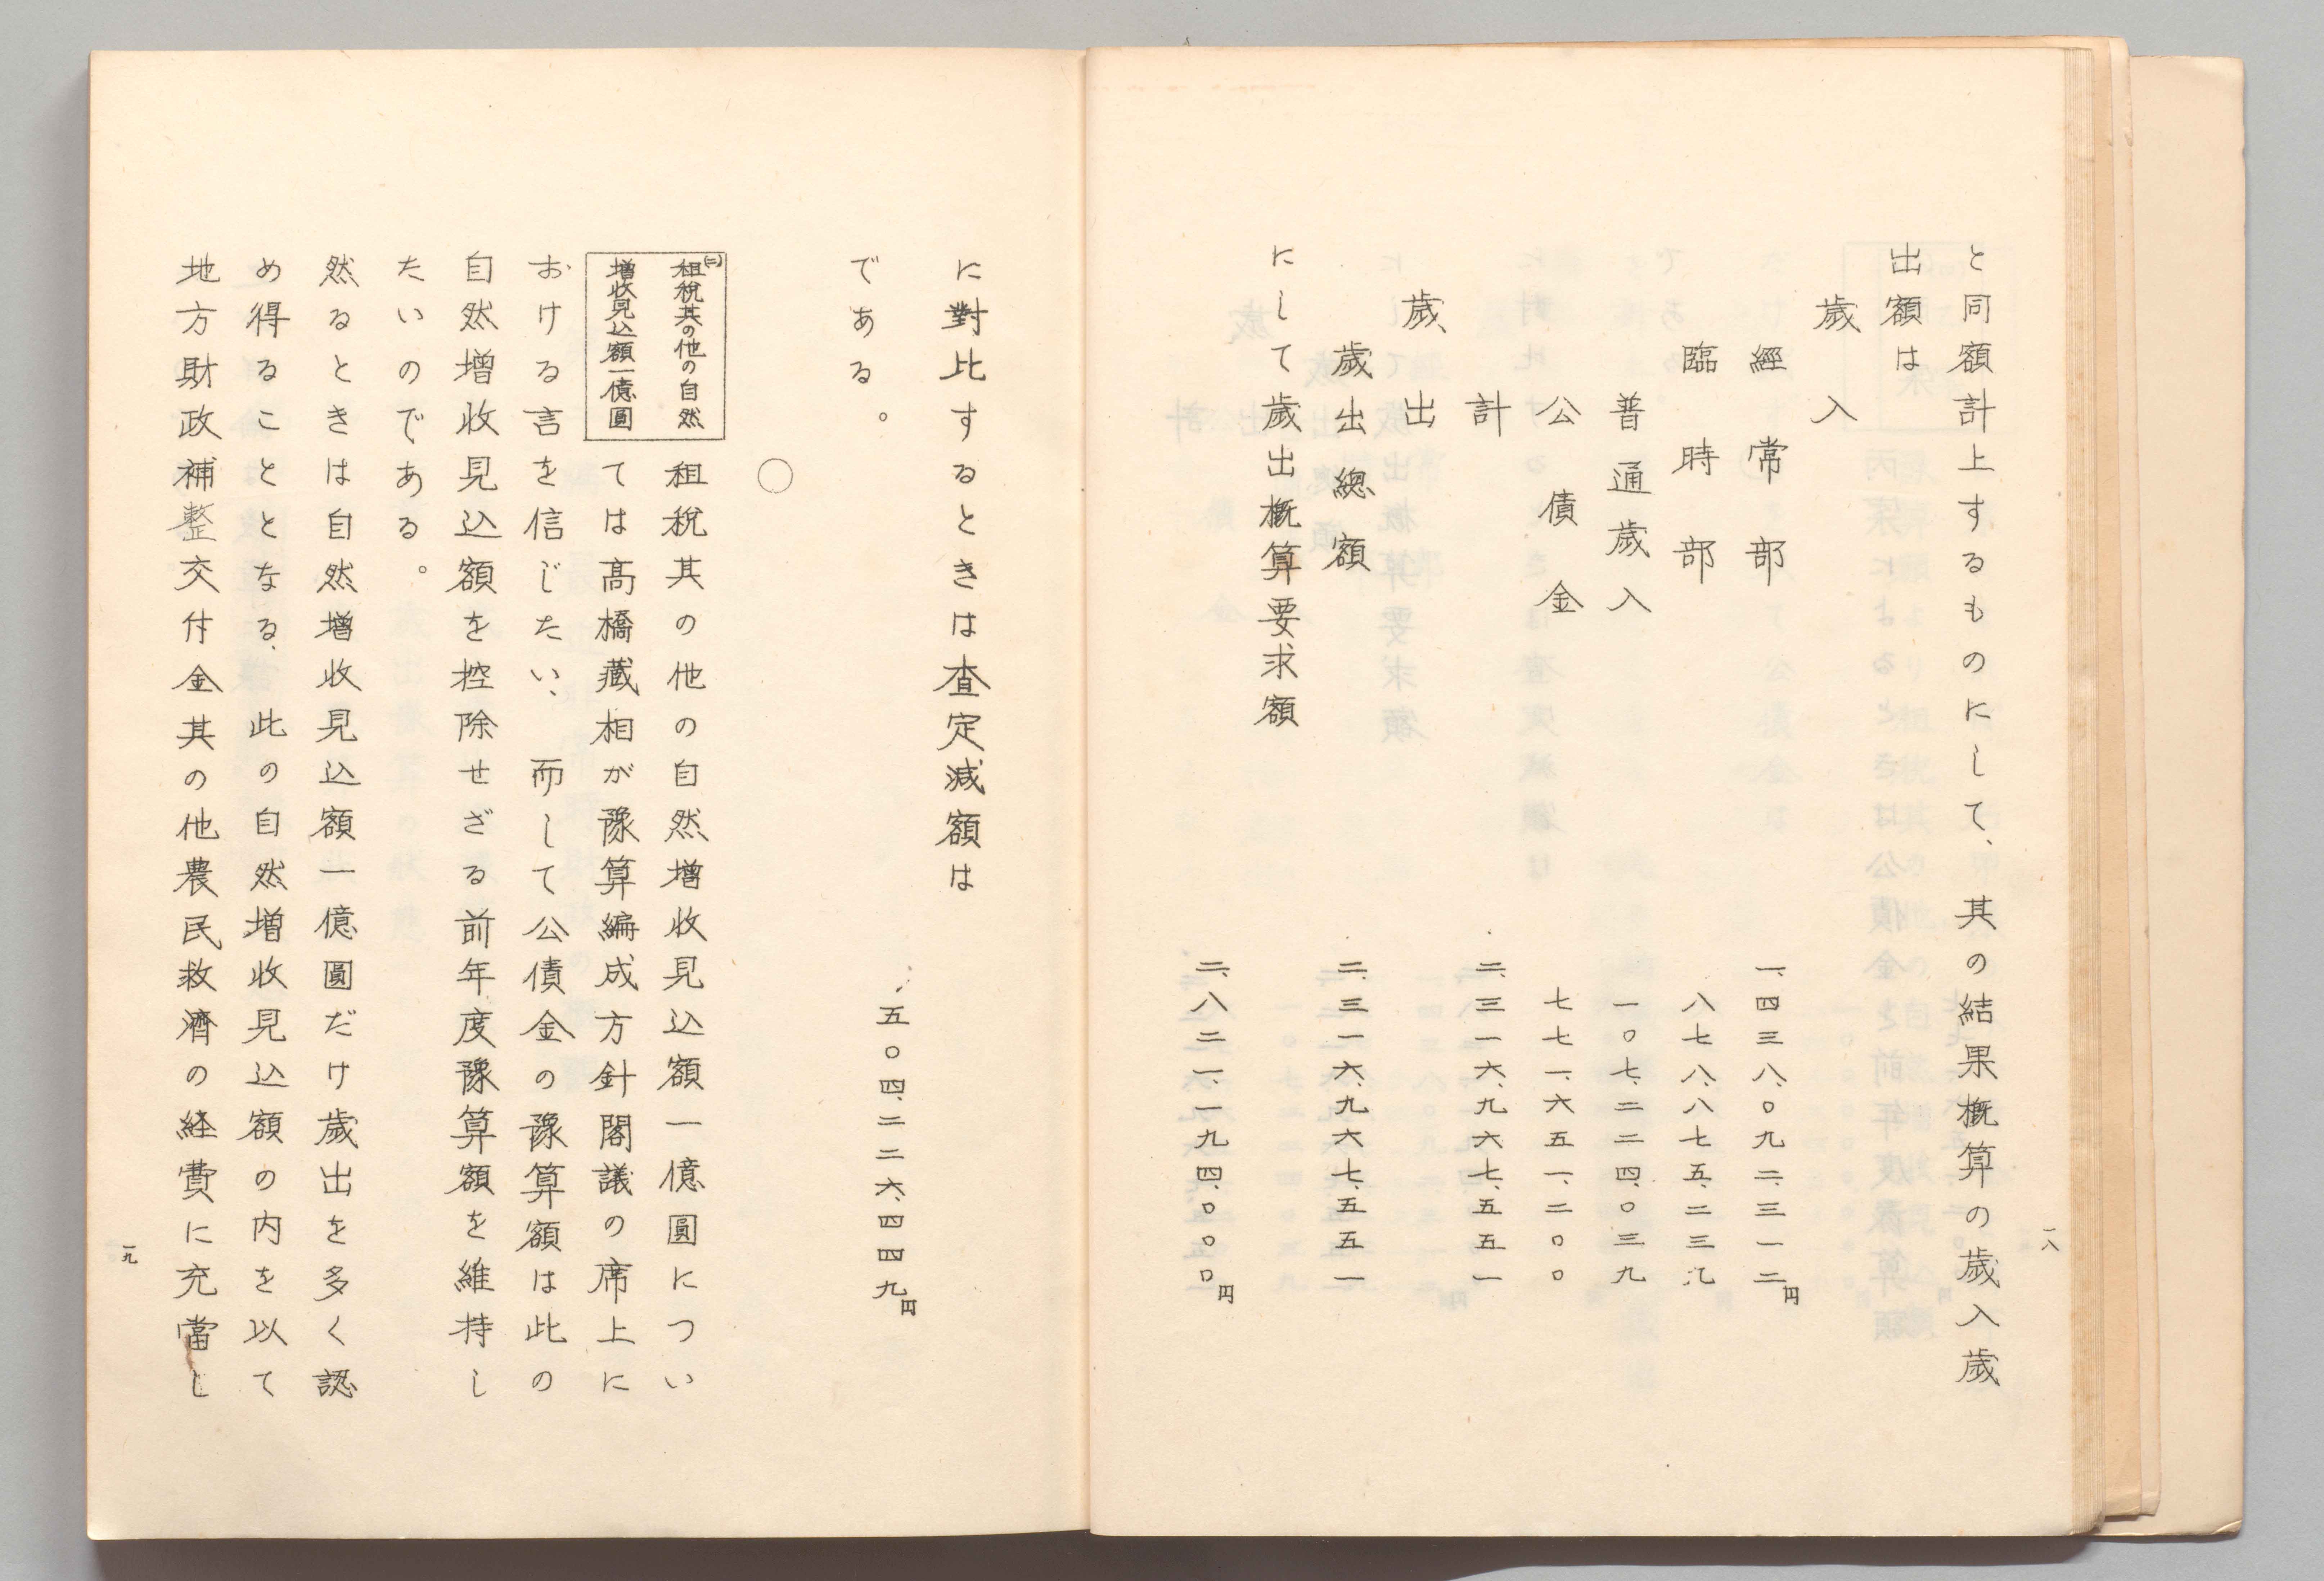 一八
と同額計上するものにして、其の結果概算の歳入歳
出額は
歳入
經常部 一、四三八、〇九二、三一二円
臨時部 八七八、八七五、二三九
普通歳入 一〇七、二二四、〇三九
公債金 七七一、六五一、二〇〇
計 二、三一六、九六七、五五一
歳出
歳出總額 二、三一六、九六七、五五一
にして歳出概算要求額
二、八二一、一九四、〇〇〇円
に對比するときは査定減額は
五〇四、二二六、四四九円
である。
○
(二)租税其の他の自然
増收見込額一億圓
租税其の他の自然増收見込額一億圓につい
ては高橋藏相が豫算編成方針閣議の席上に
おける言を信じたい、而して公債金の豫算額は此の
自然増收見込額を控除せざる前年度豫算額を維持し
たいのである。
然るときは自然増收見込額一億圓だけ歳出を多く認
め得ることとなる、此の自然増收見込額の内を以て
地方財政補整交付金其の他農民救濟の経費に充當し
一九